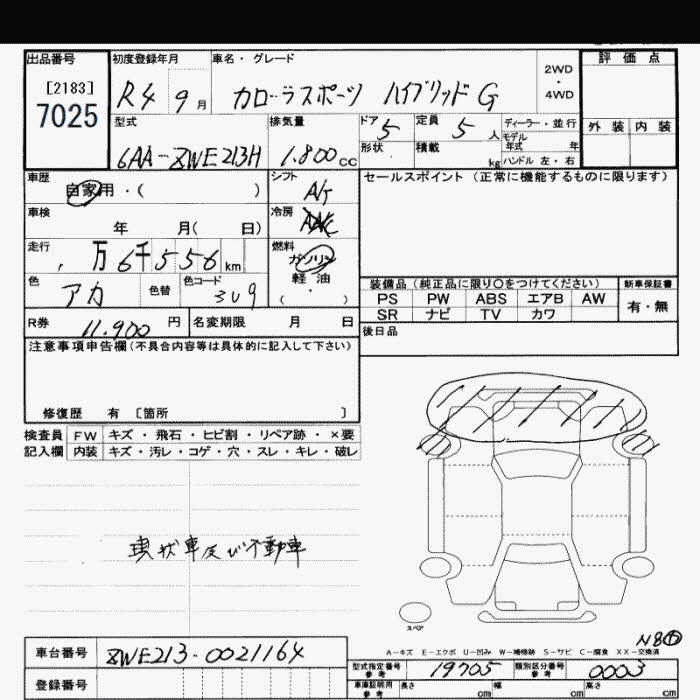 出品番号 初度登録年月 車名・グレード 2WD・4WD 評価点
[2183]
7025
R4 9月 カローラスポーツ ハイブリッド G
型式 排気量 ドア 5 定員 5人 ディーラー・並行 外装 内装
モデル年式 年
6AA-ZWE213H 1.800cc 形状 積載 kg ハンドル 左・右
車歴 自家用・( ) シフト A/T セールスポイント (正常に機能するものに限ります)
車検 年 月( 日) 冷房 AAC
走行 万6千556km 燃料 ガソリン
軽・油
( )
色 アカ 色替 色コード 3U9
装備品 (純正品に限り〇をつけてください) 新車保証書
PS PW ABS エアB AW 有・無
SR ナビ TV カワ
R券 11.900円 名変期限 月 日 後日品
注意事項申告欄(不具合内容等は具体的に記入して下さい)
修復歴 有 〔箇所 〕
検査員 FW キズ・飛石・ヒビ割・リペア跡・×要
記入欄 内装 キズ・汚レ・コゲ・穴・スレ・キレ・破レ
現状車及び不動車
スペア
A-キズ E-エクボ U-凹み W-補修跡 S-サビ C-腐食 XX-交換済
車台番号 ZWE213-0021164
登録番号
型式指定番号 参考 19705 類別区分番号 参考 0003
車庫証明用 参考 長さ cm 幅 cm 高さ cm